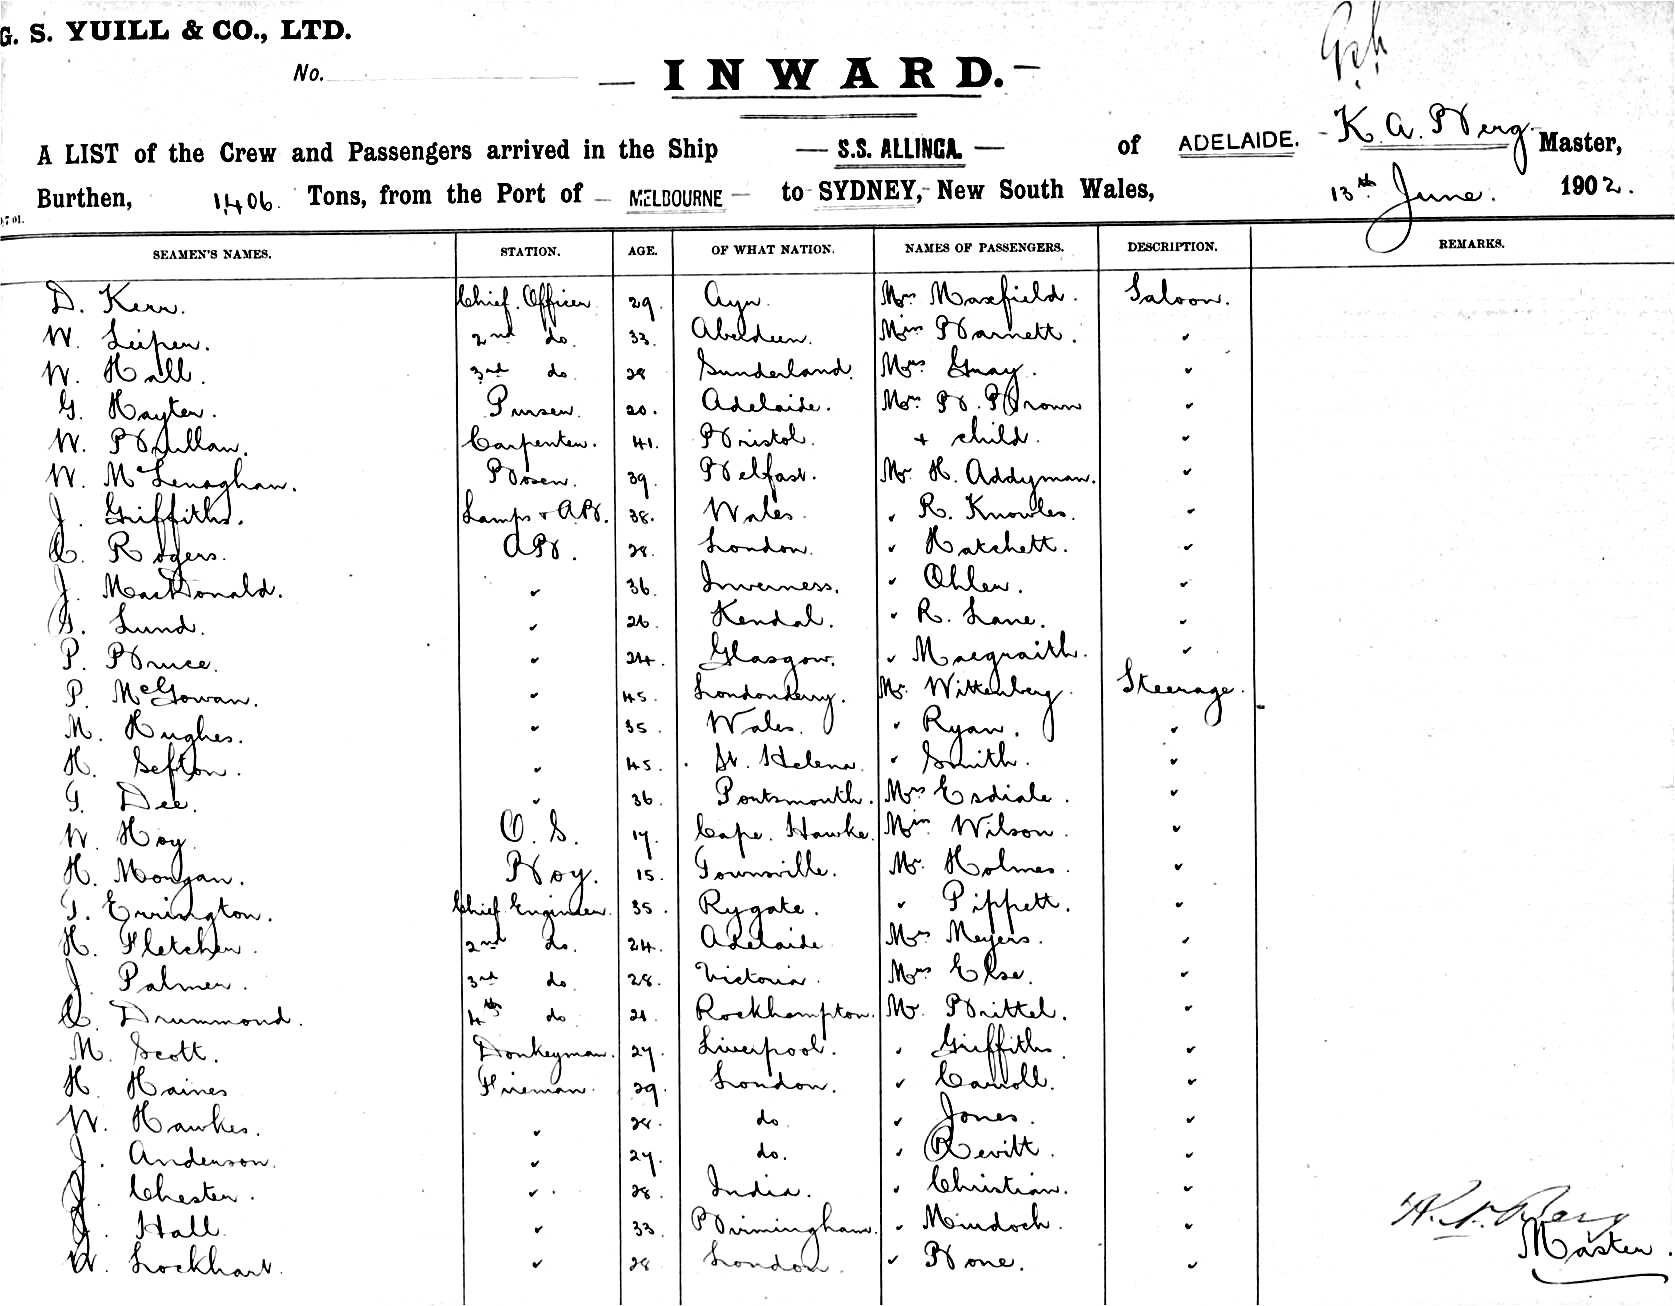 G. S. YUILL & CO., LTD.
No.
INWARD.
A LIST of the Crew and Passengers arrived in the Ship — S.S. ALLINGA. — of ADELAIDE. K. A. Berg Master,
Burthen, 1,406 Tons, from the Port of MELBOURNE to SYDNEY, New South Wales, 13th June. 1902.
SEAMEN'S NAMES. STATION. AGE. OF WHAT NATION. NAMES OF PASSENGERS. DESCRIPTION. REMARKS.
D. Kerr. Chief Officer 29. Ayr. Mrs Maxfield. Saloon.
W. Leiper. 2nd do. 33. Aberdeen. Miss Barnett. "
W. Hall. 3rd do 28 Sunderland. Mrs Gray. "
G. Hayter. Purser. 20. Adelaide. Mrs B. Brown "
W. Bullan. Carpenter. 41. Bristol. + child. "
W. McLenaghan. Bosen. 39. Belfast. Mr H. Addyman. "
J. Griffiths. Lamps & AB. 38. Wales. " R. Knowles. "
Rogers. AB. 28. London. " Hatchett. "
J. MacDonald. " 36. Inverness. " Ohlen. "
Lund. " 26. Kendal. " R. Lane. "
P. Bruce. " 24. Glasgow. " Macgraith. "
P. McGowan. " 45. Londonderry. Mr. Wittenberg. Steerage.
M. Hughes. " 35. Wales. " Ryan. "
H. Sefton. " 45. St. Helena. " Smith. "
G. Dee. " 36. Portsmouth. Mrs Esdiale. "
W. Hoy. O. S. 17. Cape Hawke. Miss Wilson. "
H. Morgan. Boy. 15. Townsville. Mr. Holmes. "
T. Errington. Chief Engineer 35. Rygate. " Pippett. "
H. Fletcher. 2nd do. 24. Adelaide Mrs Meyers. "
J. Palmer. 3rd do. 28. Victoria. Mrs Else. "
Drummond. 4th do 21. Rockhampton. Mr. Brittel. "
M. Scott. Donkeyman. 27. Liverpool. " Griffiths. "
H. Haines Fireman. 29. London. " Carroll. "
W. Hawkes. " 28. do " Jones. "
J. Anderson. " 27. do. " Revitt. "
J. Chester. " 28. India. " Christian. "
J. Hall " 33. Birmingham. " Murdoch. "
W. Lockhart. " 28 London. " Bone. "
Berg
Master.